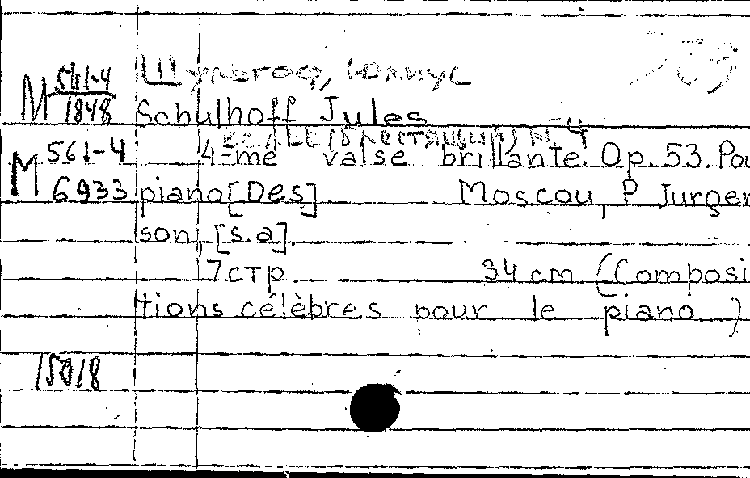 Шульгоф, Юлиус
М 561-4
1848
Schulhoff Jules
М 561-4
6933
4-ème valse brillante. Op. 53. Pou
piano [Des] Moscou, P Jurgen
son, [s.a].
7 стр. 34 cm (Composi
tions célèbres pour le piano)
15018